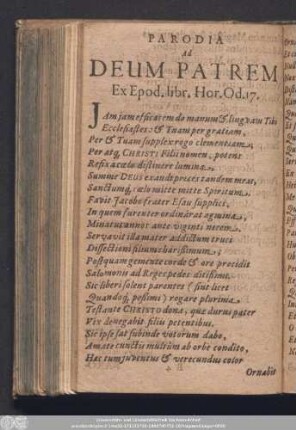 PARODIA
ad
DEUM PATREM
Ex Epod. libr. Hor. Od. 17.
JAm jam efficaci do manum & linguam Tibi
Ecclesiastes: & Tuam per gratiam,
Per & Tuam supplex rogo clementiam,
Per atq; CHRISTI Filii nomen, potens
Refixa cælo
Summe DEUS exaudi preces tandem meas,
Sanctumq; cælo mitte mitte Spiritum.
Favit Jacobo frater Esau supplici,
In quem furenter ordinârat agmina,
Servavit illa mater addictum truci
Dissectioni filium charissimum,
Postquam gemente corde & ore procidit
Salomonis ad Reges pedes ditissimi.
Sic liberi solent parentes (sint licet
Quandoq; pessimi) rogare plurima
Testante CHRISTO dona, quæ durus pater
Vix denegabit filiis petentibus.
Sic ipse sat subinde votorum dabo,
Amate cunctis multùm ab orbe condito,
Hac tum juventus & verecundus color
Ornabit